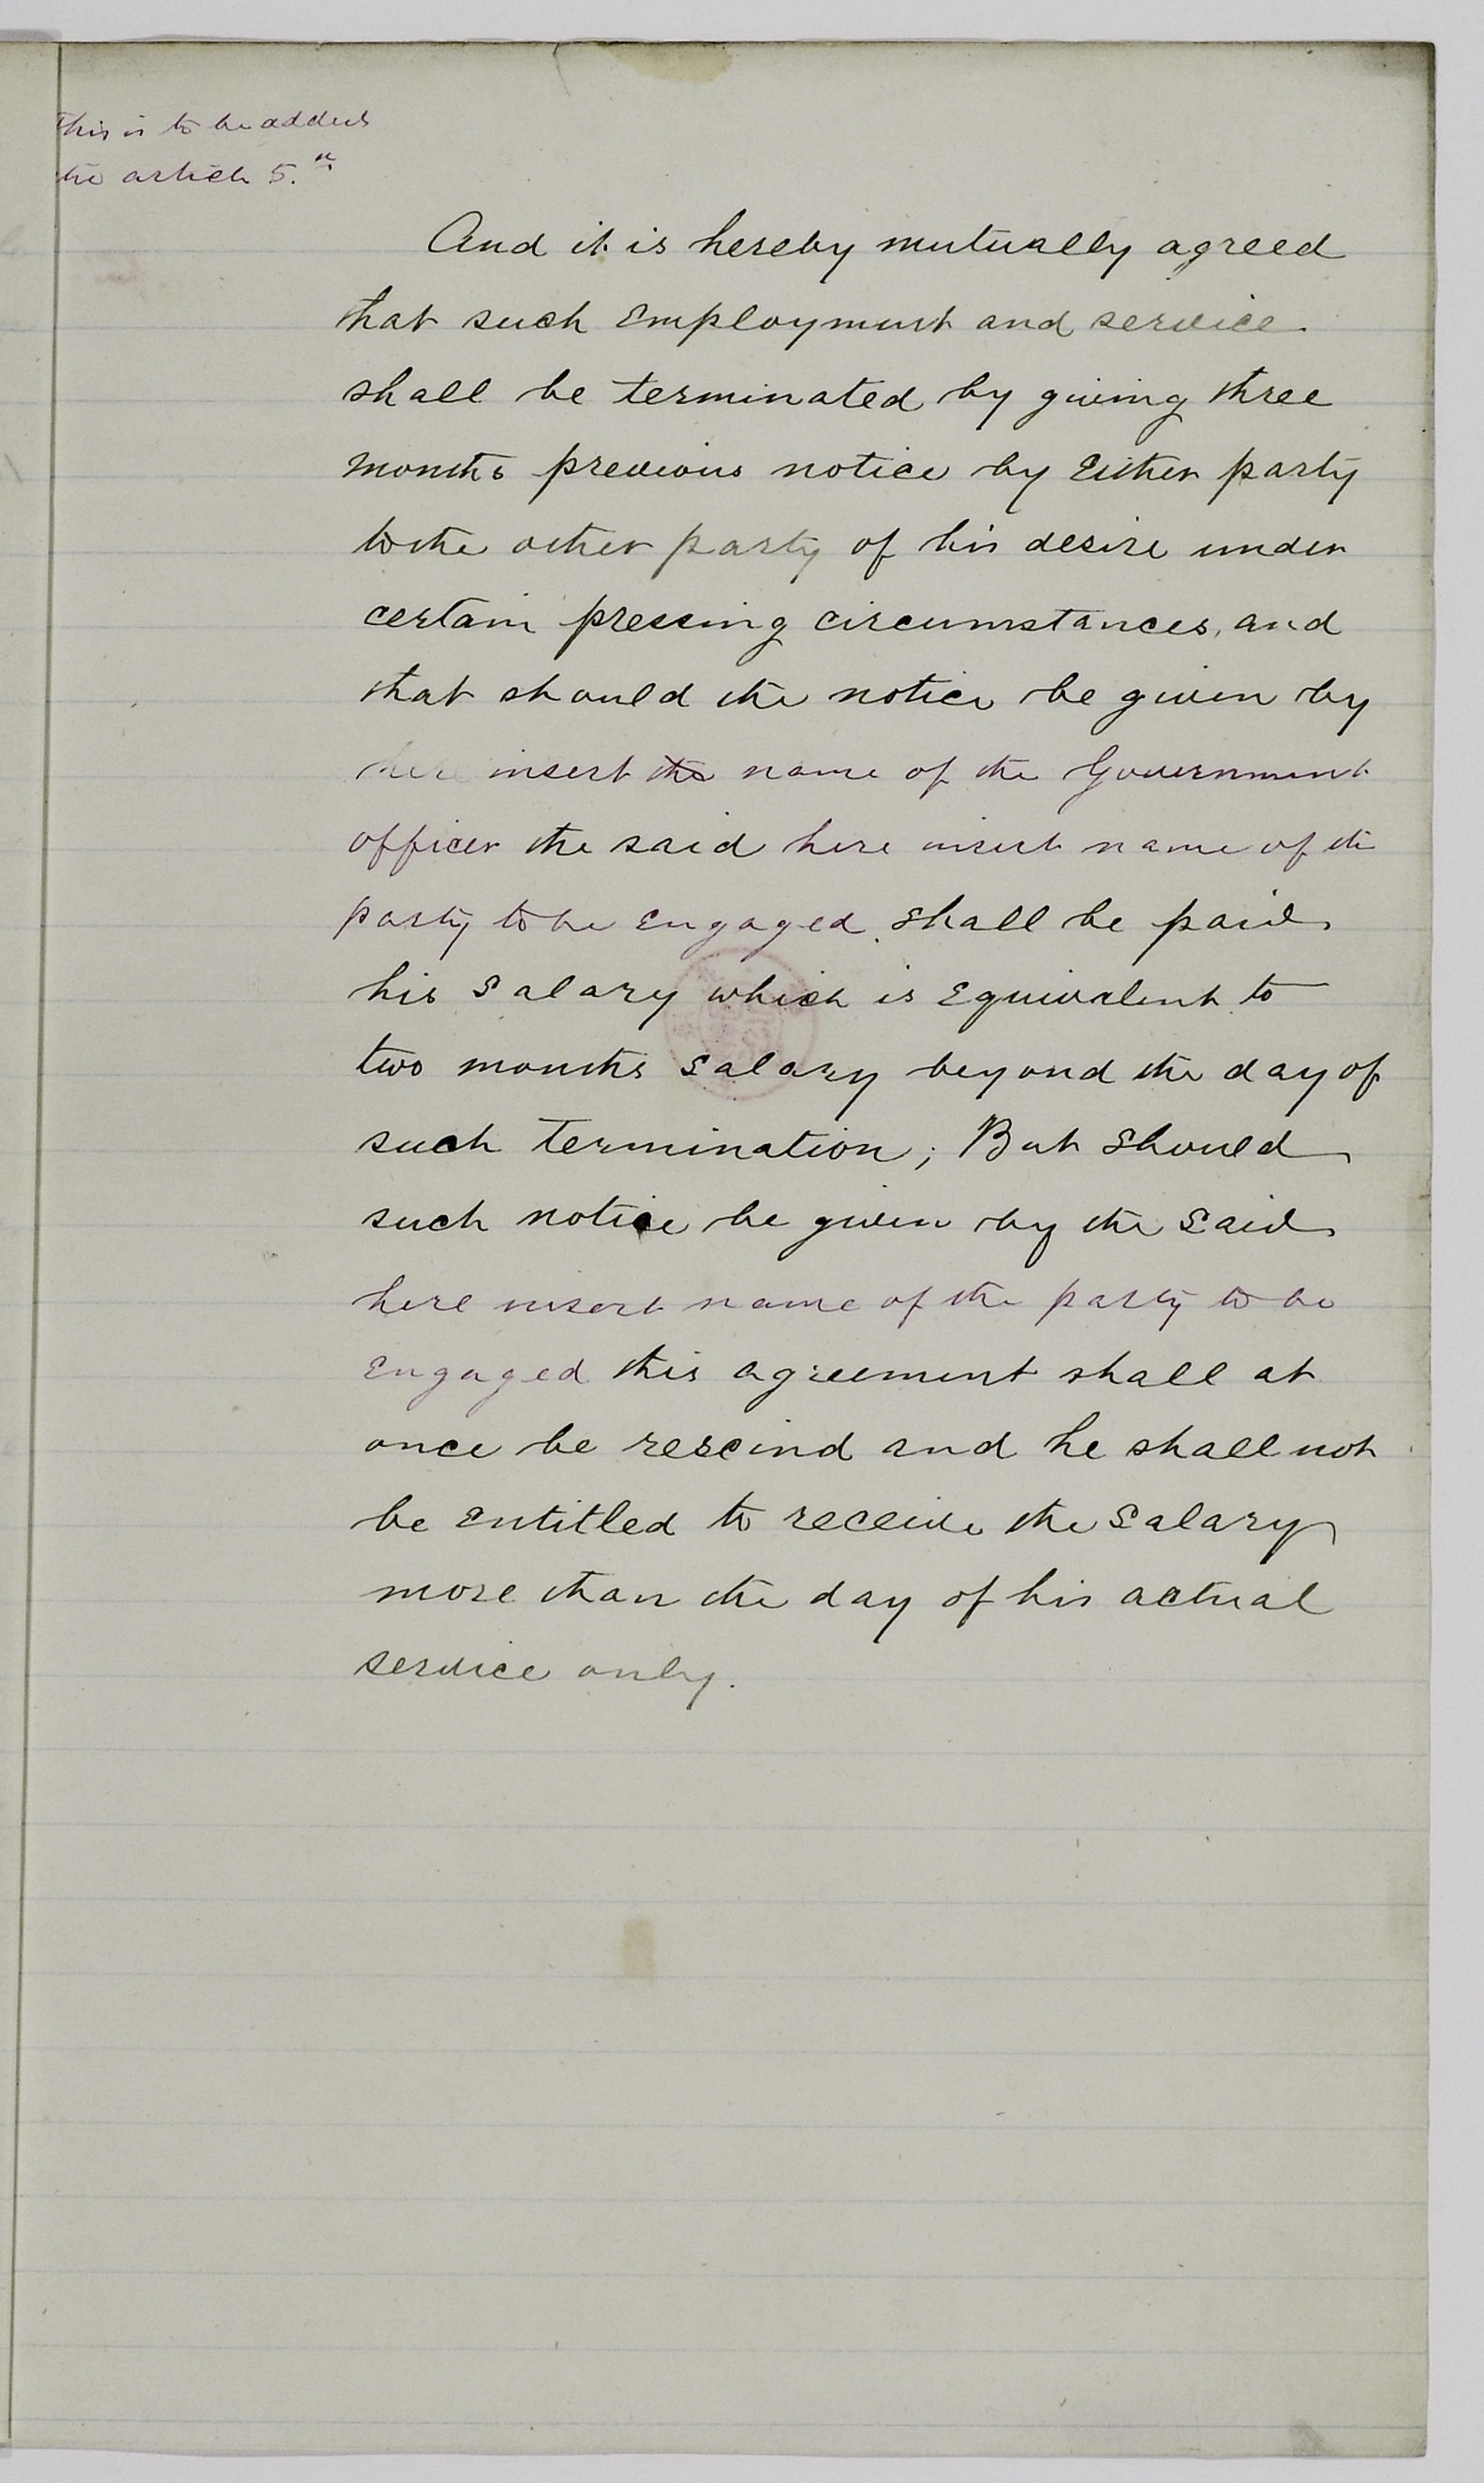 This is to be added
the article 5.th
And it is hereby mutually agreed
that such Employment and service
shall be terminated by giving three
months previous notice by Either party
to the other party of his desire under
certain pressing circumstances, and
that should the notice be given by
here insert the name of the Government
officer the said here insert name of the
party to be Engaged shall be paid
his Salary which is Equivalent to
two months Salary beyond the day of
such Termination; But Should
such notice be given by the Said
here insert name of the party to be
Engaged this agreement shall at
once be rescind and he shall not
be Entitled to receive the Salary
more than the day of his actual
service only.